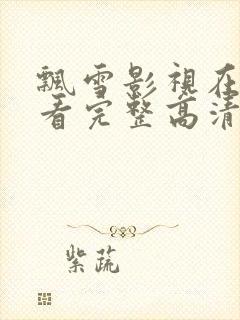 飄雪影視在
看完整高清
紫蔬